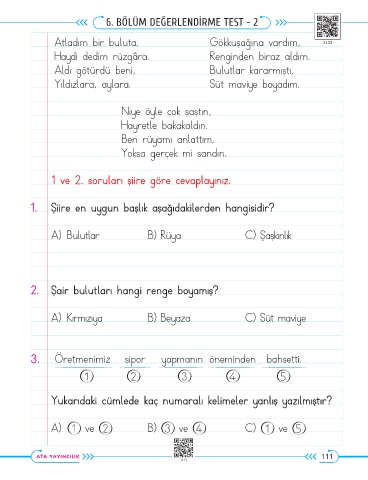 6. BÖLÜM DEĞERLENDİRME TEST - 2
Atladım bir buluta,
Haydi dedim rüzgâra.
Aldı götürdü beni,
Yıldızlara, aylara.
Gökkuşağına vardım,
Renginden biraz aldım.
Bulutlar kararmıştı,
Süt maviye boyadım.
Niye öyle çok şaştın,
Hayretle bakakaldın.
Ben rüyamı anlattım,
Yoksa gerçek mi sandın.
1 ve 2. soruları şiire göre cevaplayınız.
1. Şiire en uygun başlık aşağıdakilerden hangisidir?
A) Bulutlar B) Rüya C) Şaşkınlık
2. Şair bulutları hangi renge boyamış?
A) Kırmızıya B) Beyaza C) Süt maviye
3. Öretmenimiz sipor yapmanın öneminden bahsetti.
1 2 3 4 5
Yukarıdaki cümlede kaç numaralı kelimeler yanlış yazılmıştır?
A) 1 ve 2 B) 3 ve 4 C) 1 ve 5
ATA YAYINCILIK
111